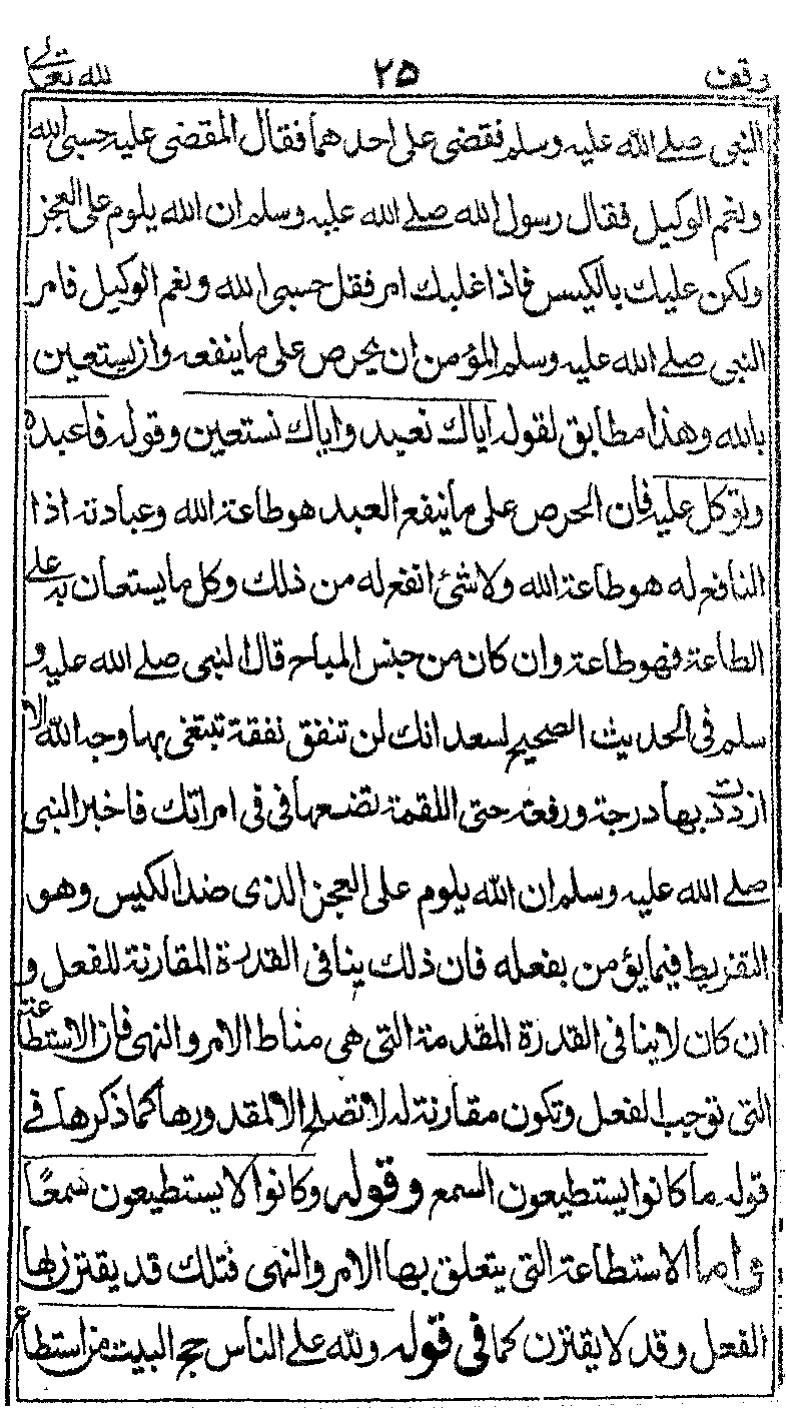 وقف ٢٥ لله تعالى
النبى صلے الله عليه وسلم فقضى على احدهما فقال المقضى عليه حسبى الله
ونعم الوكيل فقال رسول الله صلے الله عليه وسلم ان الله يلوم على العجز
ولكن عليك بالكيس فاذا غلبك امر فقل حسبى الله ونعم الوكيل فامر
النبى صلے الله عليه وسلم المؤمن ان يحرص على ما ينفعه وان يستعين
بالله وهذا مطابق لقوله اياك نعبد واياك نستعين وقوله فاعبده
وتوكل عليه فان الحرص على ما ينفع العبد هو طاعة الله وعبادته اذا
النافع له هو طاعة الله ولا شئ انفع له من ذلك وكل ما يستعان به على
الطاعة فهو طاعة وان كان من جنس المباح قال النبى صلے الله عليه و
سلم فى الحديث الصحيح لسعد انك لن تنفق نفقة تبتغى بها وجه الله الا
ازددت بها درجة ورفعة حتى اللقمة تضعها فى فى امراتك فاخبر النبى
صلے الله عليه وسلم ان الله يلوم على العجز الذى ضد الكيس وهو
التفريط فيما يؤمن بفعله فان ذلك ينافى القدرة المقارنة للفعل و
ان كان لا ينافى القدرة المقدمة التى هى مناط الامر والنهى فان الاستطاعة
التى توجب الفعل وتكون مقارنة له لا تصلح الا لمقدورها كما ذكرها فے
قوله ما كانوا يستطيعون السمع وقوله وكانوا لا يستطيعون سمعًا
واما الاستطاعة التى يتعلق بها الامر والنهى فتلك قد يقترن بها
الفعل وقد لا يقترن كما فى قوله ولله على الناس حج البيت من استطاع